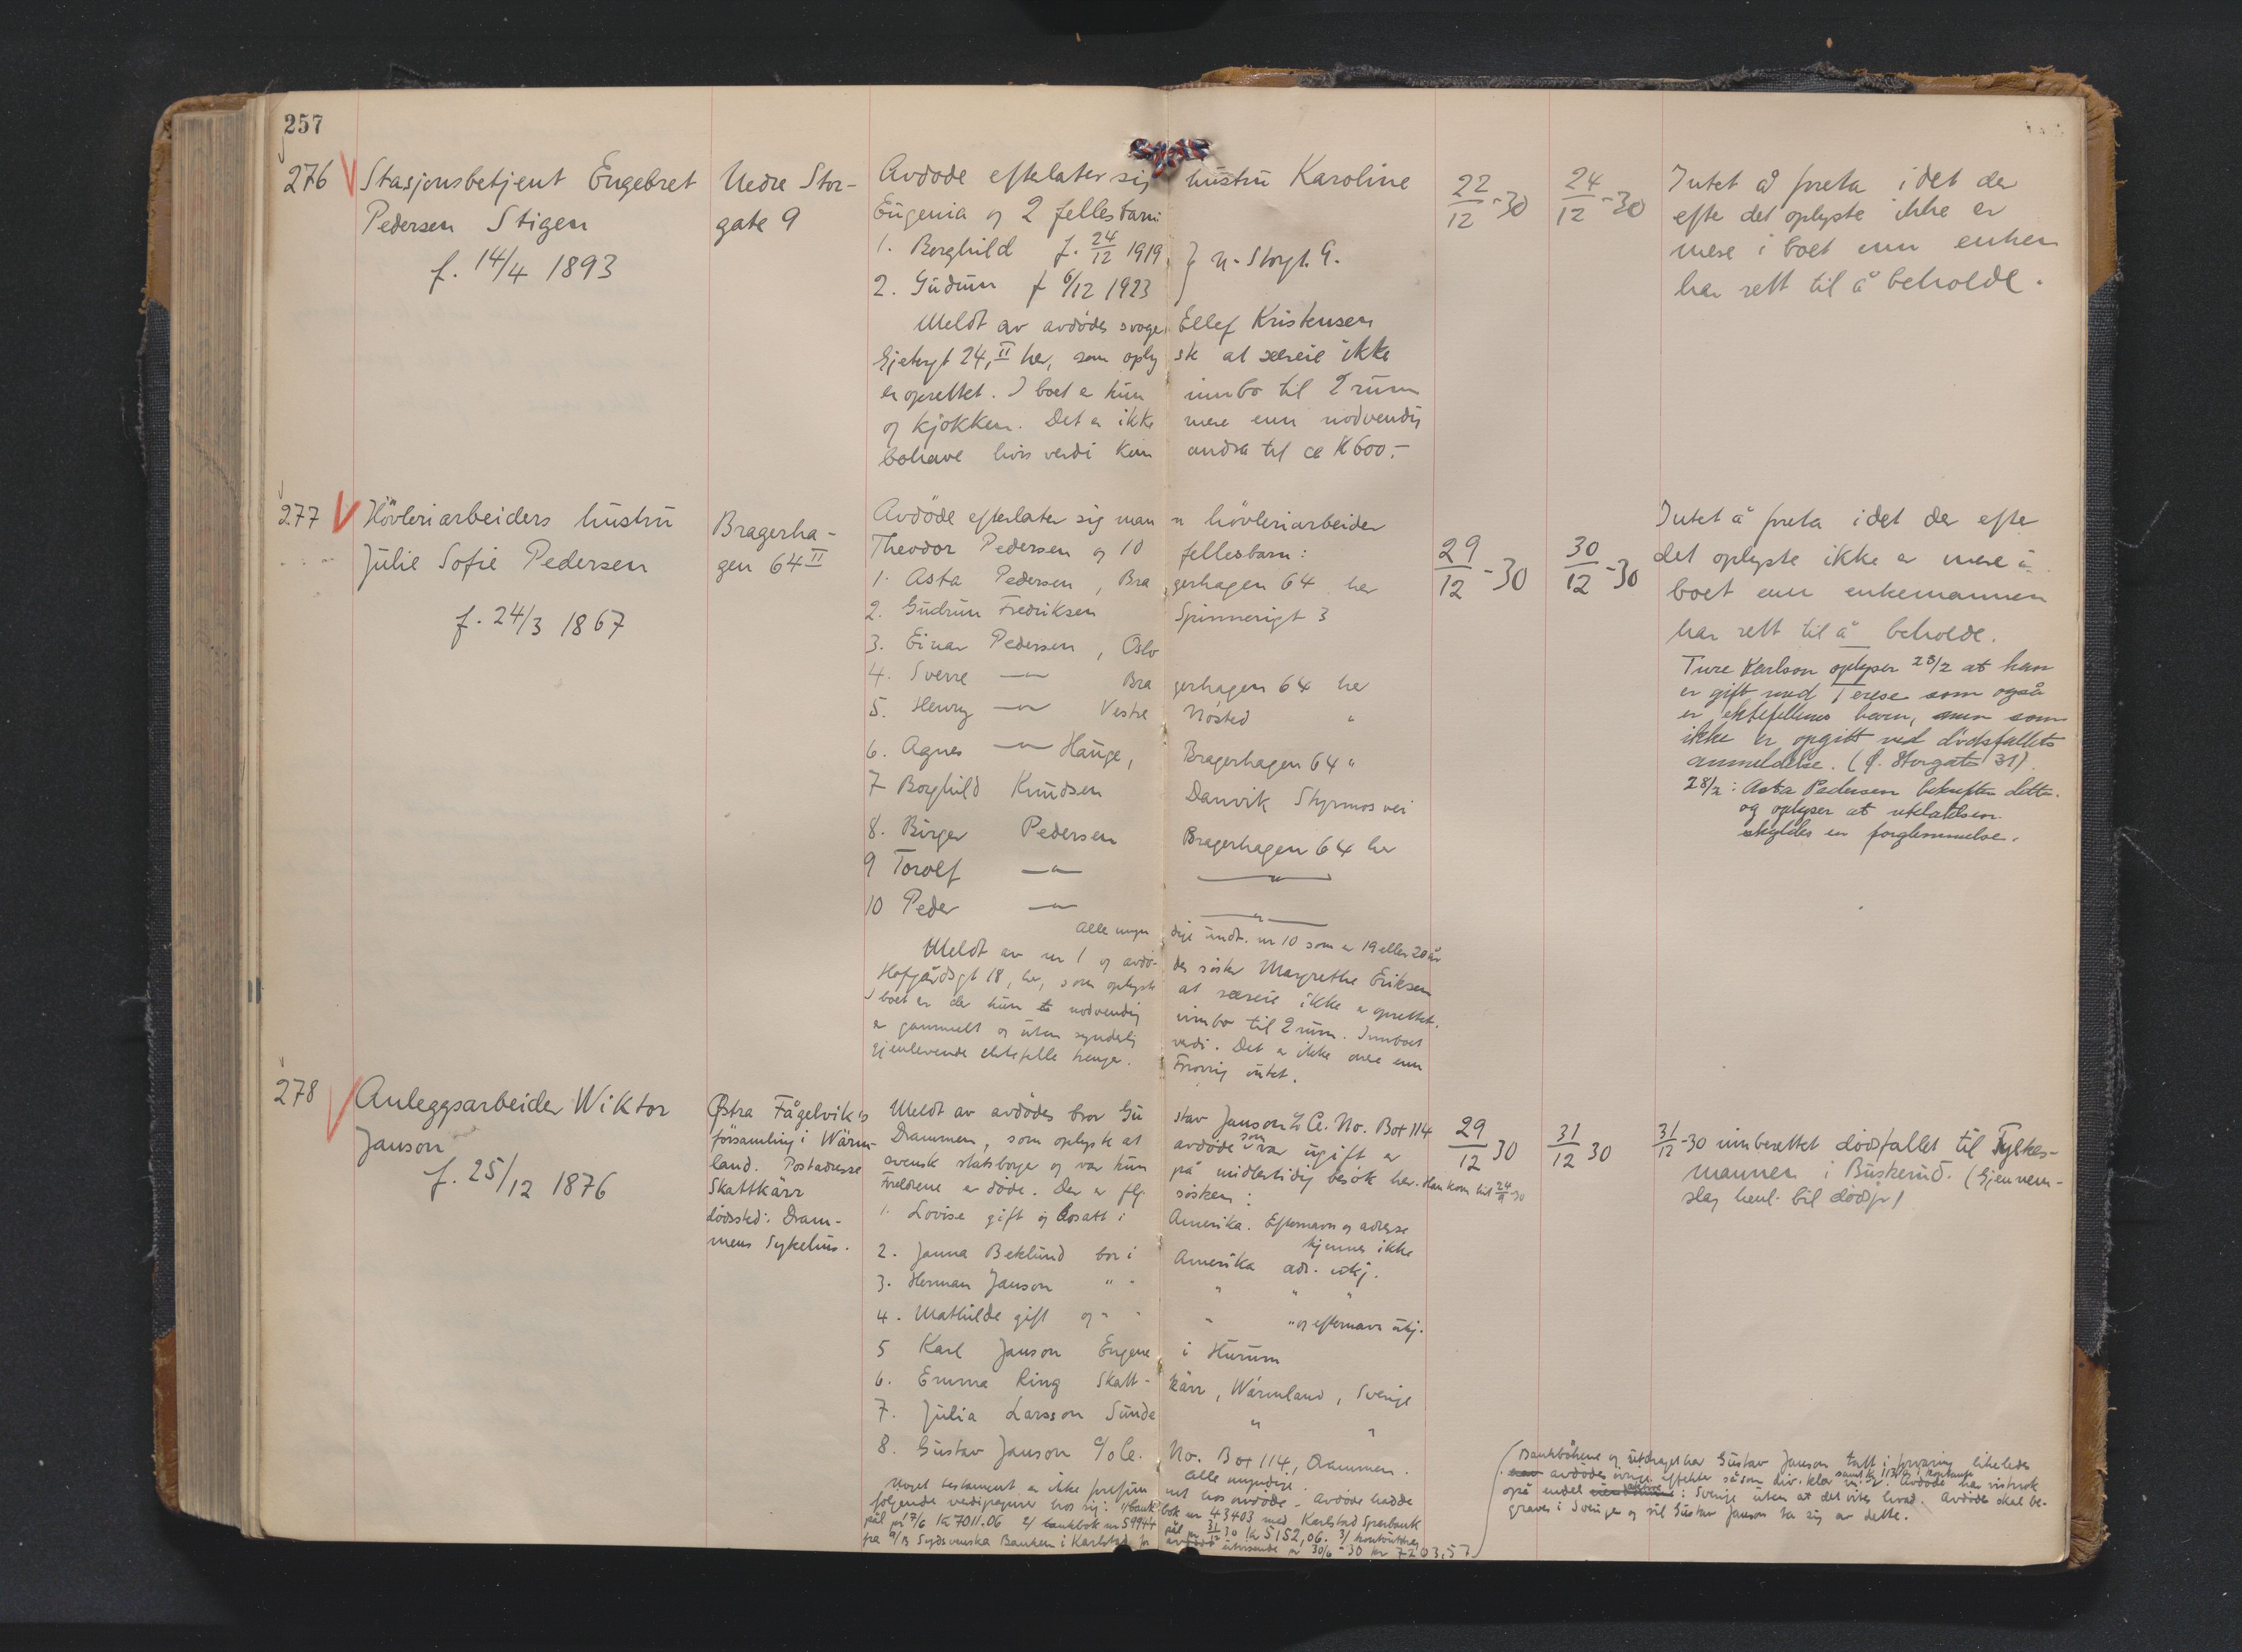 257
276 Stasjonsbetjent Engebret
Pedersen Stigen
f. 14/4 1893
Nedre Stor-
gate 9
Avdøde efterlater sig hustru Karoline
Eugenia og 2 fellesbarn
1. Borghild f. 24/12 1919
2. Gudrun f 6/12 1923
} N. Storgt. 9.
Meldt av avdødes svoger Ellef Kristensen
Gjetergt 24, II her, som oplyste at særeie ikke
er oprettet. I boet er kun innbo til 2 rum
og kjøkken. Det er ikke mere enn nødvendig
bohave hvis verdi kun andra til ca K 600.-
22/12-30
24/12-30
Intet å foreta idet der
efter det oplyste ikke er
mere i boet enn enken
har rett til å beholde.
277 Høvleriarbeiders hustru
Julie Sofie Pedersen
f. 24/3 1867
Bragerha-
gen 64 II
Avdøde efterlater sig mann høvleriarbeider
Theodor Pedersen og 10 fellesbarn:
1. Asta Pedersen, Bragerhagen 64 her
2. Gudrun Fredriksen Spinnerigt 3
3. Einar Pedersen, Oslo
4. Sverre —"— Bragerhagen 64 her
5. Henry —"— Vestre Nøsted "
6. Agnes —"— Hauge, Bragerhagen 64 "
7 Borghild Knudsen Danvik Styrmos vei
8. Birger Pedersen Bragerhagen 64 her
9 Torolf —"— —"—
10 Peder —"— —"—
Alle myndige undt. nr 10 som er 19 eller 20 år
Meldt av nr 1 og avdødes søster Margrethe Eriksen
Hofgårdsgt 18, her, som oplyste at særeie ikke er oprettet.
I boet er der kun nødvendig innbo til 2 rum. Innboet
er gammelt og uten synderlig verdi. Det er ikke mere enn
gjenlevende ektefelle trenger. Forøvrig intet.
29/12-30
30/12-30
Intet å foreta idet der efter
det oplyste ikke er mere i
boet enn enkemannen
har rett til å beholde.
Ture Karlson oplyser 28/2 at han
er gift med Terese som også
er ektefellenes barn, men som
ikke er opgitt ved dødsfallets
anmeldelse. (Ø. Storgate 31).
28/2: Asta Pedersen bekrefter dette
og oplyser at utelatelsen
skyldes en forglemmelse.
278 Anleggsarbeider Wiktor
Janson
f. 25/12 1876
Østra Fågelvik's
församling i Wärm-
land. Postadresse
Skattkärr
dødssted: Dram-
mens Sykehus.
Meldt av avdødes bror Gustav Janson % Ce. No. Box 114
Drammen, som oplyste at avdøde som var ugift er
svensk statsborger og var kun på midlertidig besøk her. Han kom hit 24/9-30
Foreldrene er døde. Der er flg. søsken:
1. Lovise gift og bosatt i Amerika. Efternavn og adresse
kjennes ikke
2. Janna Beklund bor i Amerika adr. ukj.
3. Herman Janson " " " " "
4. Mathilde gift og " " " " og efternavn ukj.
5 Karl Janson Engene i Hurum
6. Emma Ring Skattkärr, Wärmland, Sverige
7. Julia Larsson Sunda " "
8. Gustav Janson c/o Ce. No. Box 114, Drammen.
Alle myndige.
Noget testament er ikke forefunnet hos avdøde. Avdøde hadde
følgende verdipapirer hos sig: 1/ bankbok nr 43403 med Karlstad Sparbank
pål pr 17/6 kr 7011.06 2/ bankbok nr 59944 pål pr 31/12 30 kr 5152,06. 3/ kontoutdrag
fra A/B Sydsvenska Banken i Karlstad utvisende pr 30/6-30 kr 7203,57
29/12 30
31/12 30
31/12-30 innberettet dødsfallet til Fylkes-
mannen i Buskerud. (Gjennem-
slag henl. bil dødsfr)
Bankbøkene og utdraget har Gustav Janson tatt i forvaring likeledes
avdødes øvrige effekter såsom div. klær samt kr 113,- i kontanter m. v. Avdøde har visstnok
også endel i Sverige uten at det vites hvad. Avdøde skal be-
graves i Sverige og vil Gustav Janson ta sig av dette.